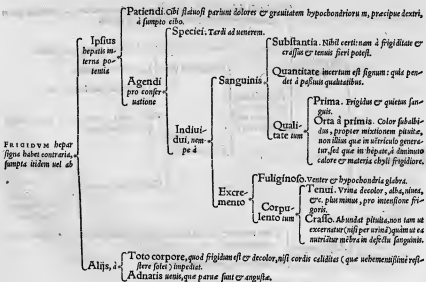 FRIGIDVM hepar
signa habet contraria,
sumpta itidem uel ab
Ipsius
hepatis in-
terna po-
tentia
Patiendi. Cibi flatuosi pariunt dolores & grauitatem hypochondriorum, præcipue dextri,
à sumpto cibo.
Agendi
pro conser-
uatione
Speciei. Tardi ad uenerem.
Indiui-
dui, nem-
pe à
Sanguinis
Substantia. Nihil certi: nam à frigiditate &
crassus & tenuis fieri potest.
Quantitate incertum est signum: quia pen-
det à passiuis qualitatibus.
Quali-
tate tum
Prima. Frigidus & quietus san-
guis.
Orta à primis. Color subalbi-
dus, propter mixtionem pituitæ,
non illius quæ in uētriculo genera-
tur, sed quæ in hepate, à diminuto
calore & materia chyli frigidiore.
Excre-
mento
Fuliginoso. Venter & hypochondria glabra.
Corpu-
lento tum
Tenui. Vrina decolor, alba, niuea,
&c. plus minus, pro intensione fri-
goris.
Crasso. Abundat pituita, non tam ut
excernatur (nisi per urinā) quàm ut ea
nutriātur mēbra in defectu sanguinis.
Alijs, à
Toto corpore, quod frigidum est & decolor, nisi cordis caliditas (quæ uehementissimè resi-
stere solet) impediat.
Adnatis uenis, quæ paruæ sunt & angustæ.